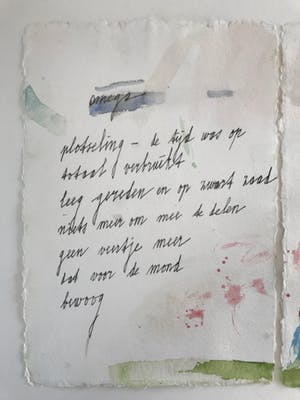 omega
plotseling – de tijd was op
totaal verbruikt
leeg gereden en op zwart zaad
niets meer om mee te delen
geen veertje meer
dat voor de mond
bewoog